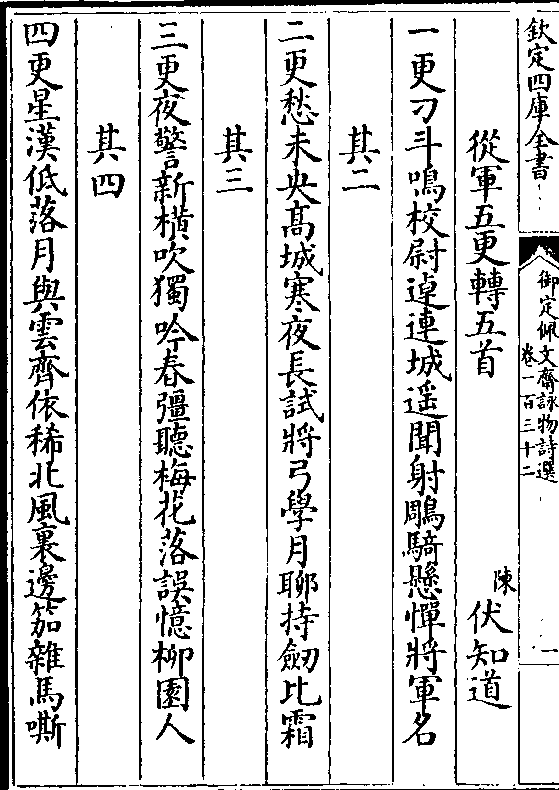 欽定四庫全書
御定佩文齋詠物詩選
卷一百三十二
一
從軍五更轉五首 陳 伏知道
一更刁斗鳴校尉逴連城遥聞射鵰騎懸憚將軍名
其二
二更愁未央髙城寒夜長試將弓學月聊持劒比霜
其三
三更夜警新橫吹獨吟春彊聽梅花落誤憶柳園人
其四
四更星漢低落月與雲齊依稀北風裏邊笳雜馬嘶